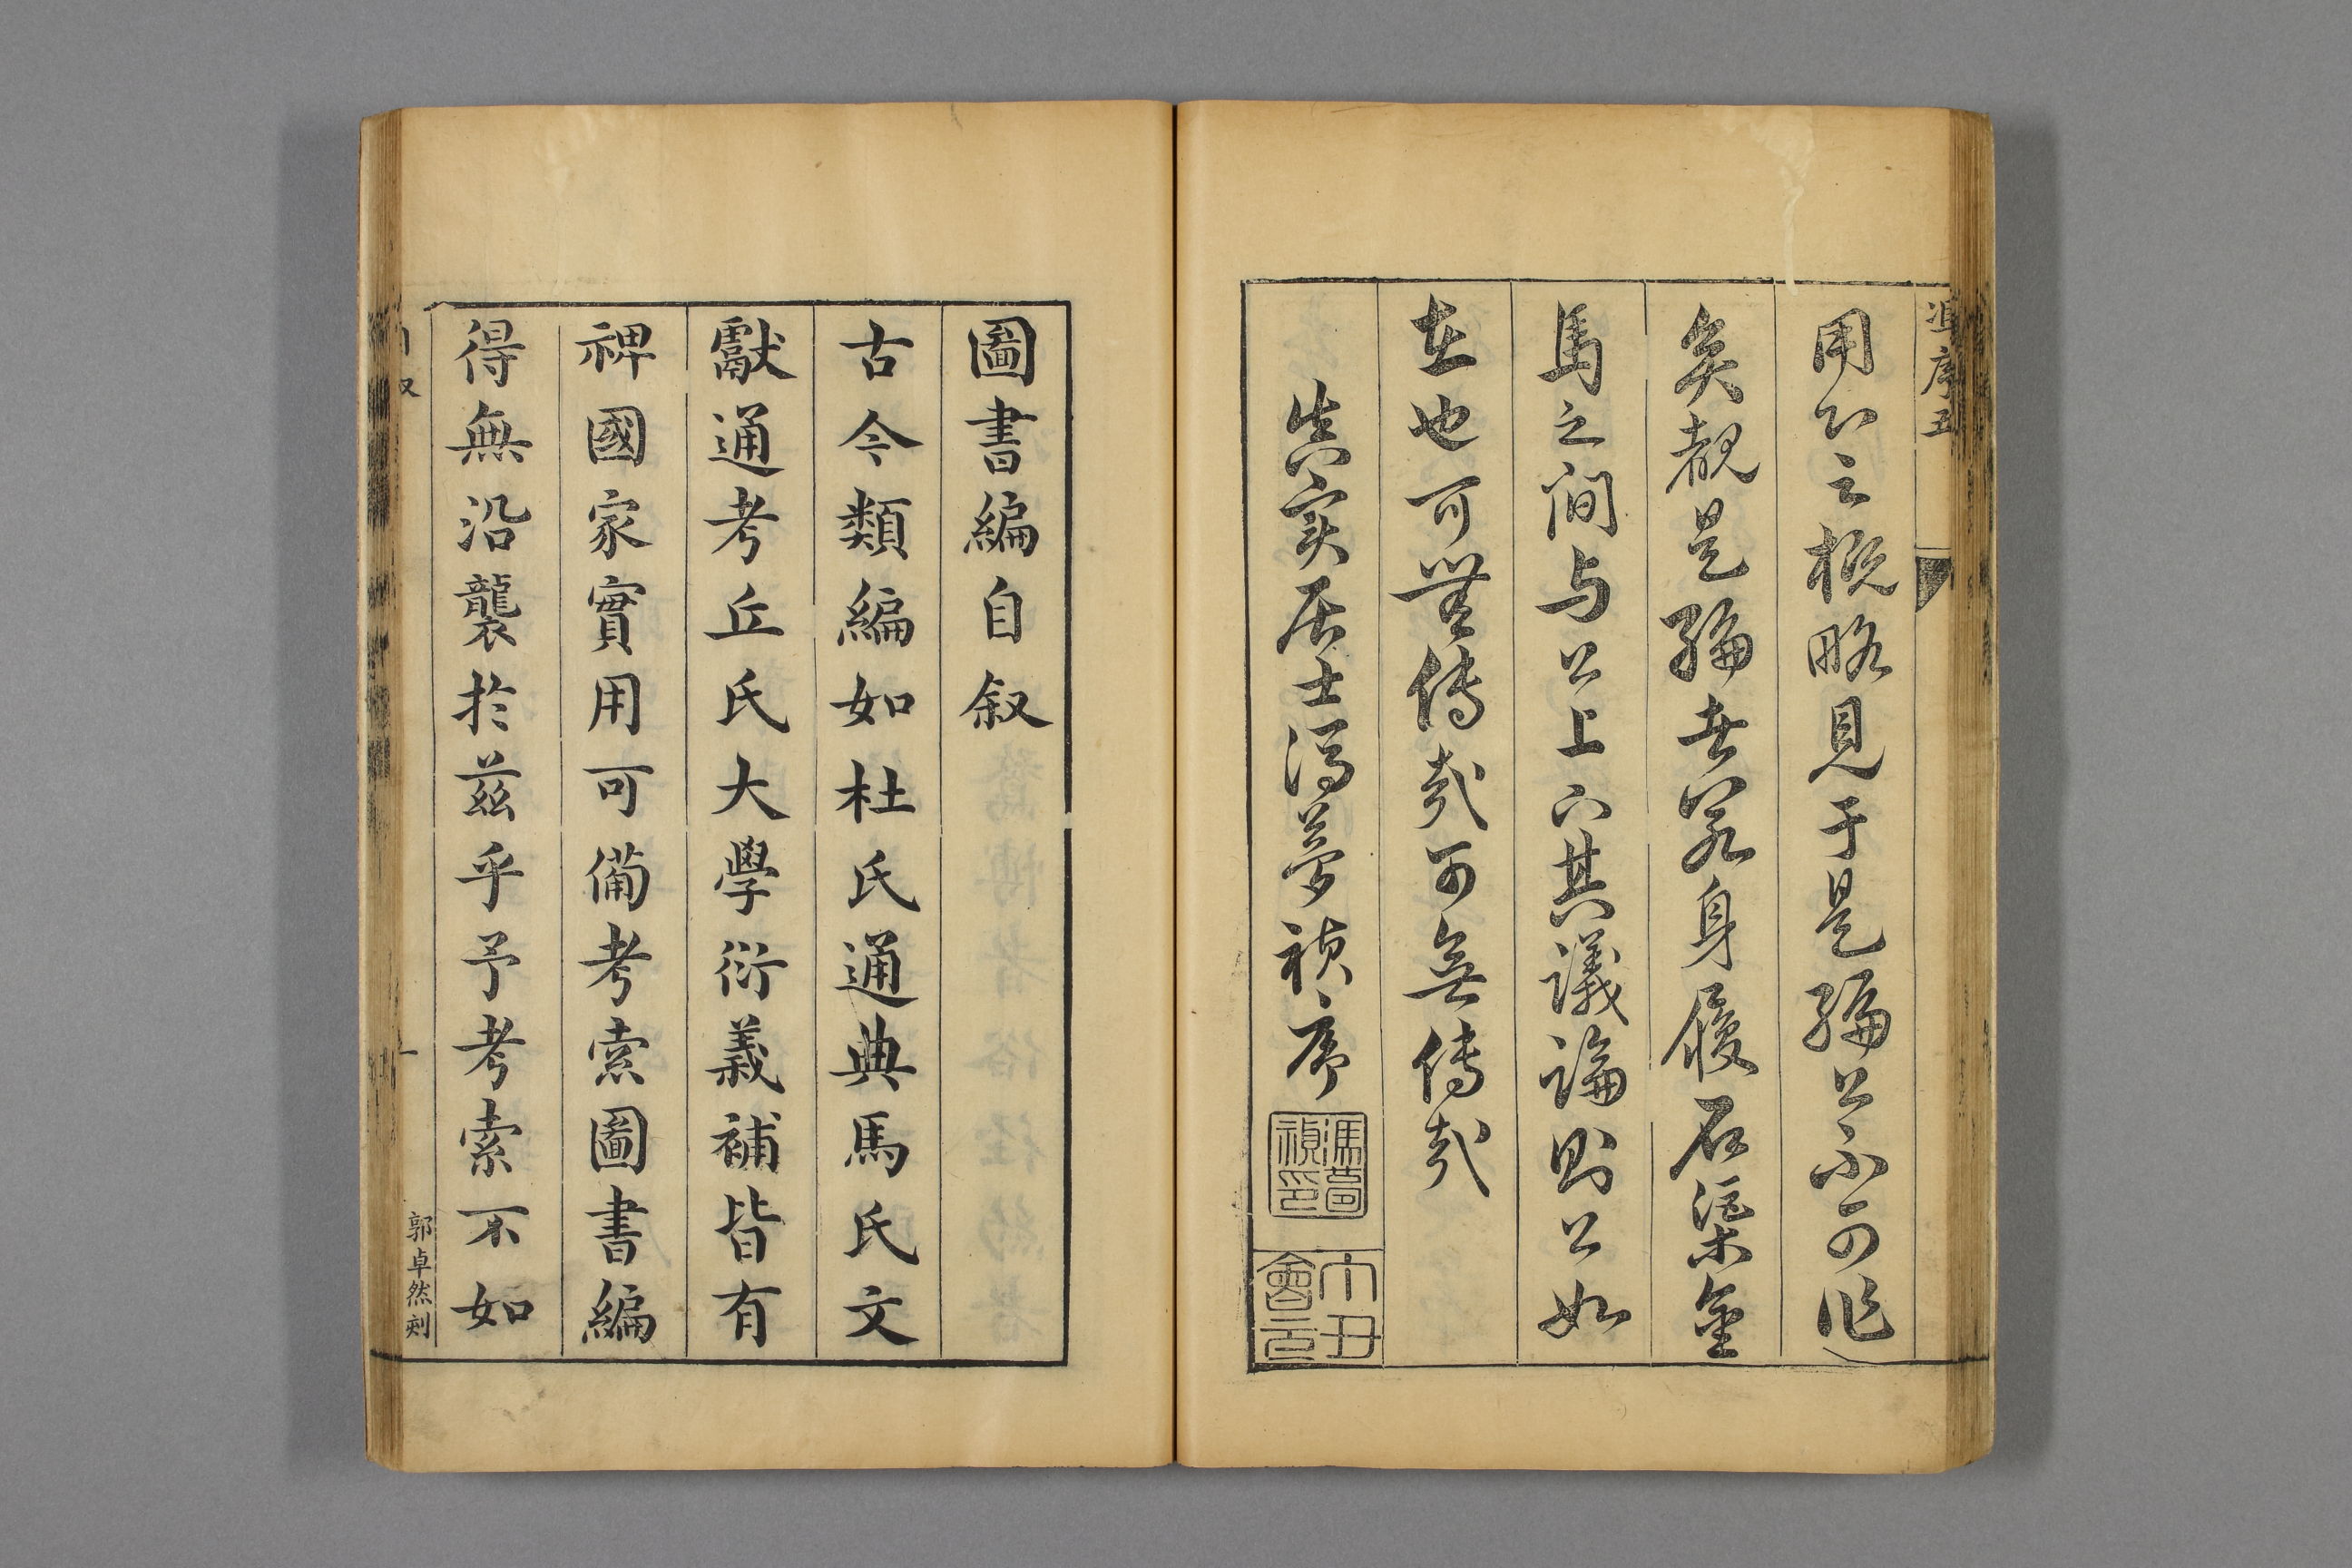 馮序五
用公之概略見于是編公不可作
矣覩是編者宛身履石渠金
馬之間与公上下其議論則公如
在也可無傳哉可無傳哉
真實居士馮夢禎序
馮夢禎印
丁丑會元
圖書編自叙
古今類編如杜氏通典馬氏文
獻通考丘氏大學衍義補皆有
裨國家實用可備考索圖書編
得無沿襲於茲乎予考索不如
叙
一
郭卓然刻